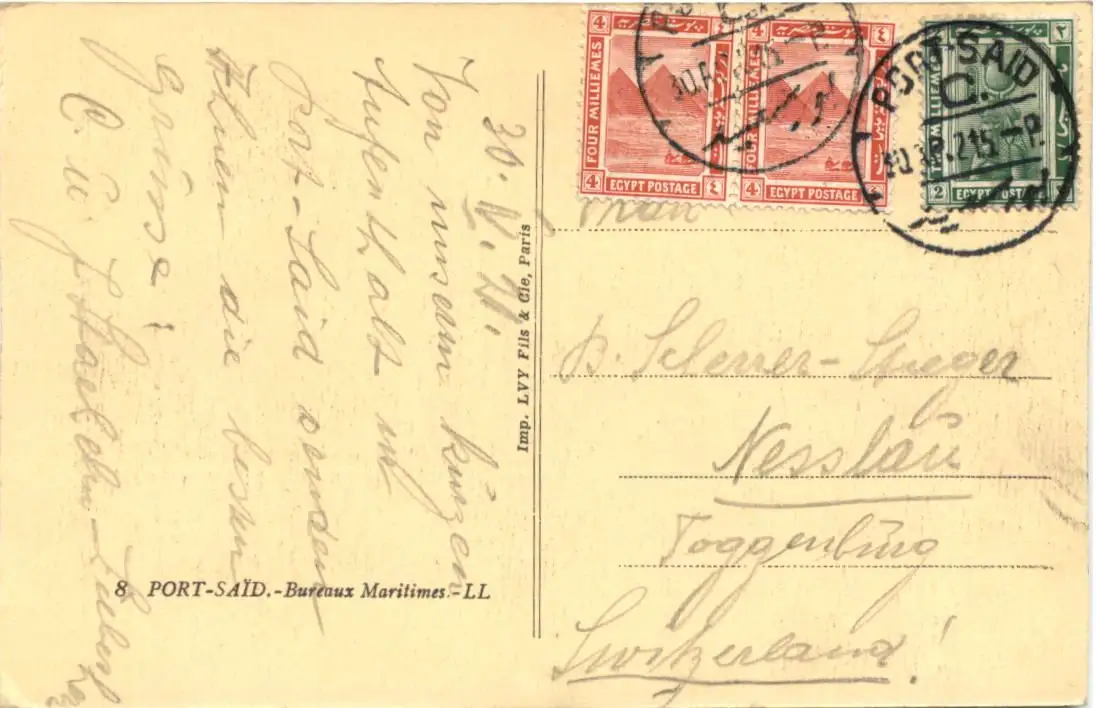 30. V. 21.
Von unserm kurzen
Aufenthalt in
Port-Said senden
Ihnen die besten
Grüsse
8 PORT-SAÏD.-Bureaux Maritimes.-LL
Imp. LVY Fils & Cie, Paris
FOUR MILLIEMES
4 EGYPT POSTAGE ٤
FOUR MILLIEMES
4 EGYPT POSTAGE ٤
TWO MILLIEMES
2 EGYPT POSTAGE ٢
PORT-SAID
C.
Frau
B. Scherrer-
Nesslau
Toggenburg
Switzerland!